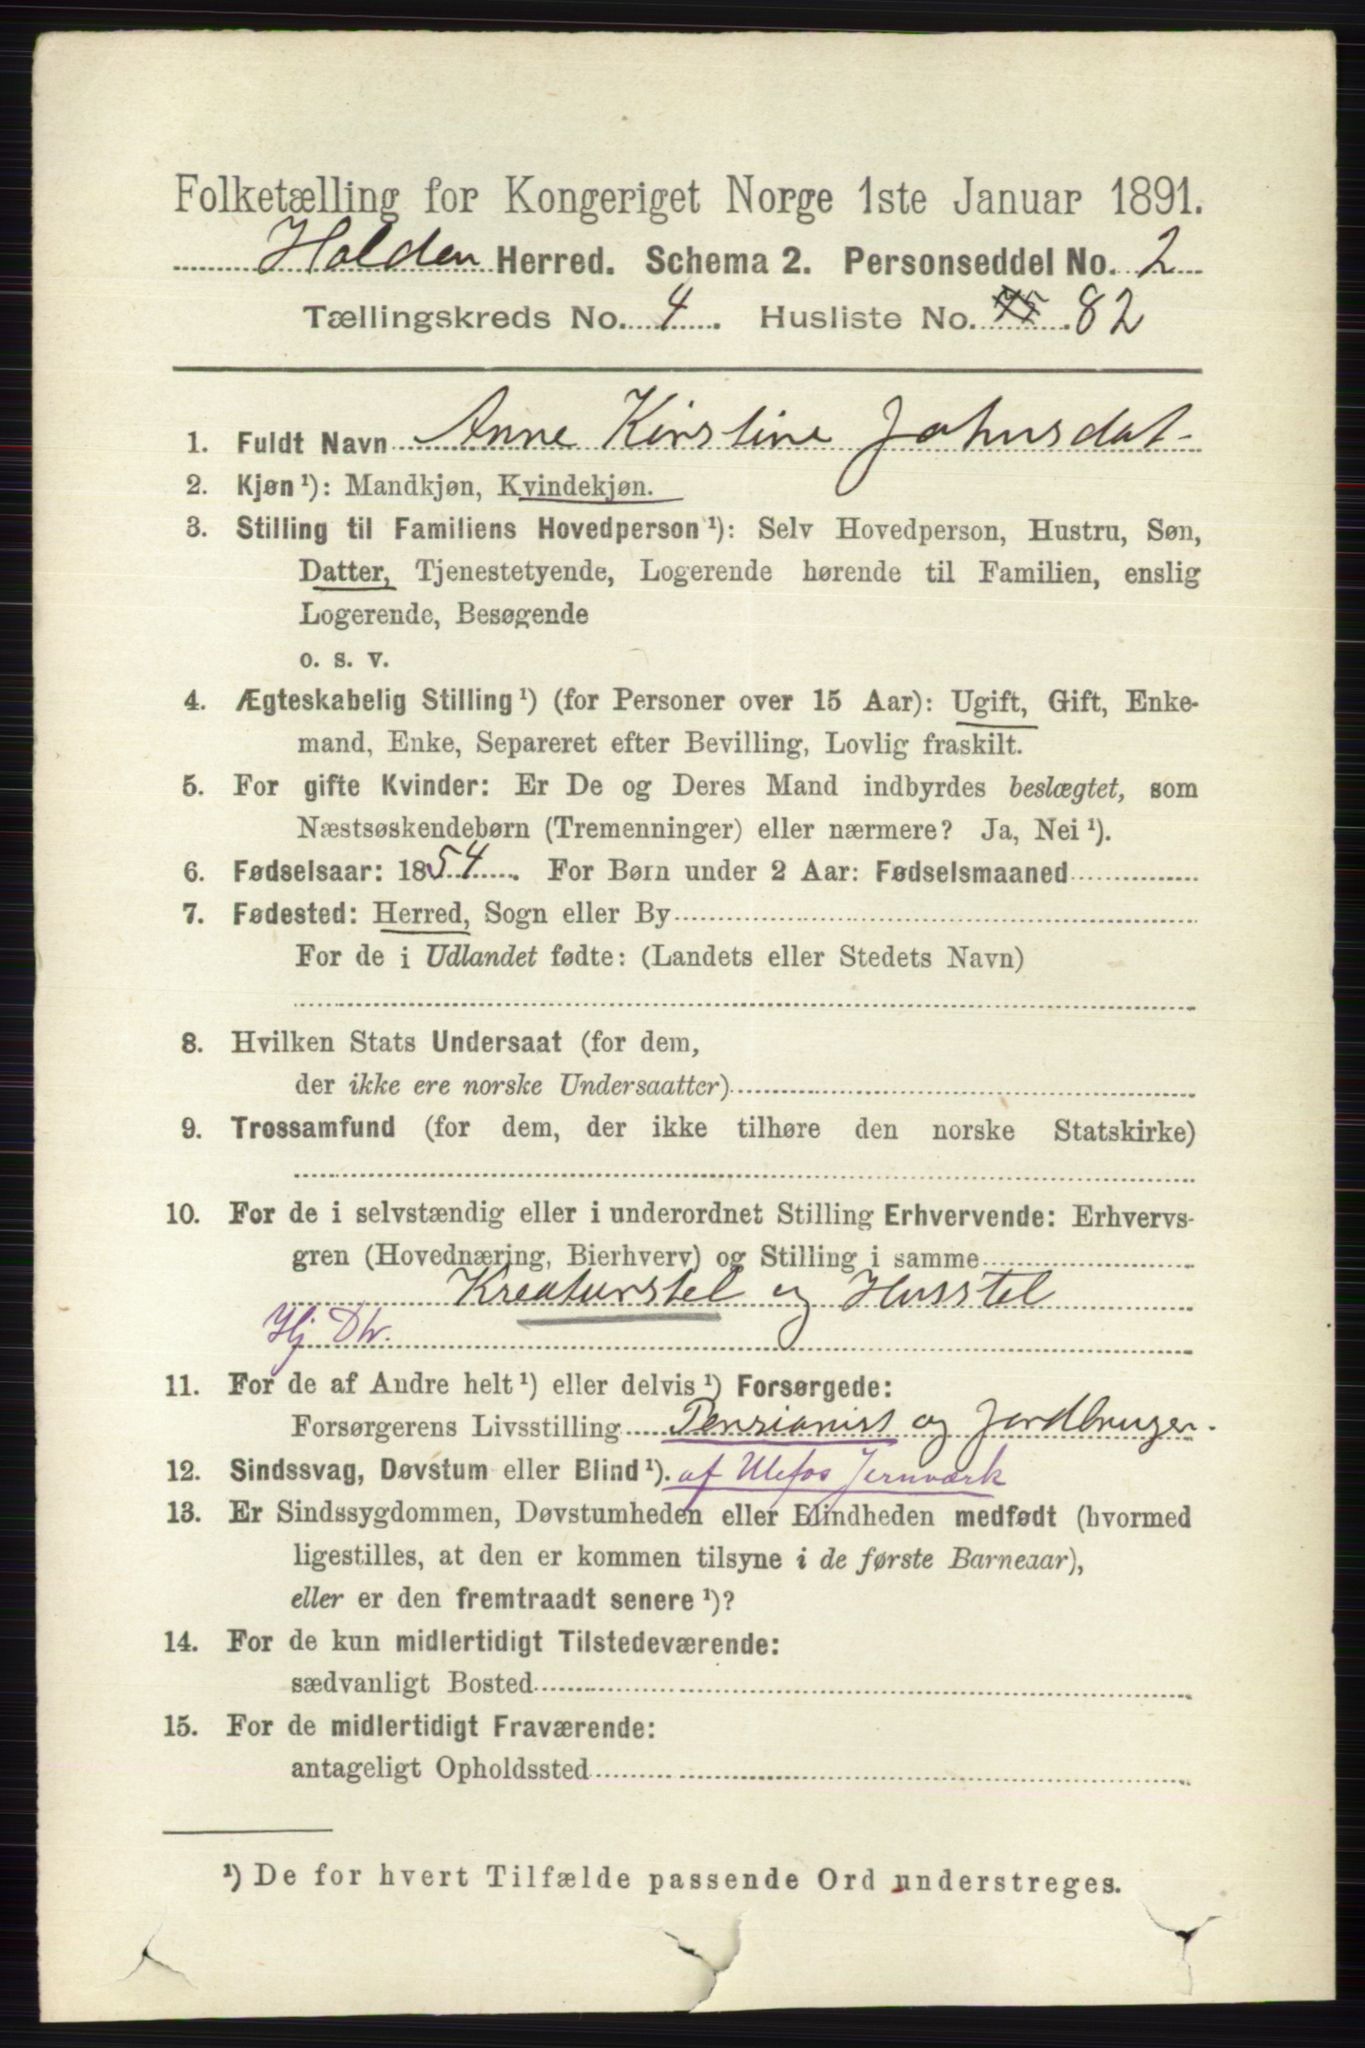 Folketælling for Kongeriget Norge 1ste Januar 1891.
Holden Herred. Schema 2. Personseddel No. 2
Tællingskreds No. 4. Husliste No. 82
1. Fuldt Navn Anne Kirstine Johnsdat-
2. Kjøn¹): Mandkjøn, Kvindekjøn.
3. Stilling til Familiens Hovedperson¹): Selv Hovedperson, Hustru, Søn,
Datter, Tjenestetyende, Logerende hørende til Familien, enslig
Logerende, Besøgende
o. s. v.
4. Ægteskabelig Stilling¹) (for Personer over 15 Aar): Ugift, Gift, Enke-
mand, Enke, Separeret efter Bevilling, Lovlig fraskilt.
5. For gifte Kvinder: Er De og Deres Mand indbyrdes beslægtet, som
Næstsøskendebørn (Tremenninger) eller nærmere? Ja, Nei¹).
6. Fødselsaar: 1854. For Børn under 2 Aar: Fødselsmaaned
7. Fødested: Herred, Sogn eller By
For de i Udlandet fødte: (Landets eller Stedets Navn)
8. Hvilken Stats Undersaat (for dem,
der ikke ere norske Undersaatter)
9. Trossamfund (for dem, der ikke tilhøre den norske Statskirke)
10. For de i selvstændig eller i underordnet Stilling Erhvervende: Erhvervs-
gren (Hovednæring, Bierhverv) og Stilling i samme
Kreaturstel og Husstel
Hj. Dtr.
11. For de af Andre helt¹) eller delvis¹) Forsørgede:
Forsørgerens Livsstilling Pensionist og Jordbruger.
12. Sindssvag, Døvstum eller Blind¹). af Ulefos Jernværk
13. Er Sindssygdommen, Døvstumheden eller Blindheden medfødt (hvormed
ligestilles, at den er kommen tilsyne i de første Barneaar),
eller er den fremtraadt senere¹)?
14. For de kun midlertidigt Tilstedeværende:
sædvanligt Bosted
15. For de midlertidigt Fraværende:
antageligt Opholdssted
¹) De for hvert Tilfælde passende Ord understreges.